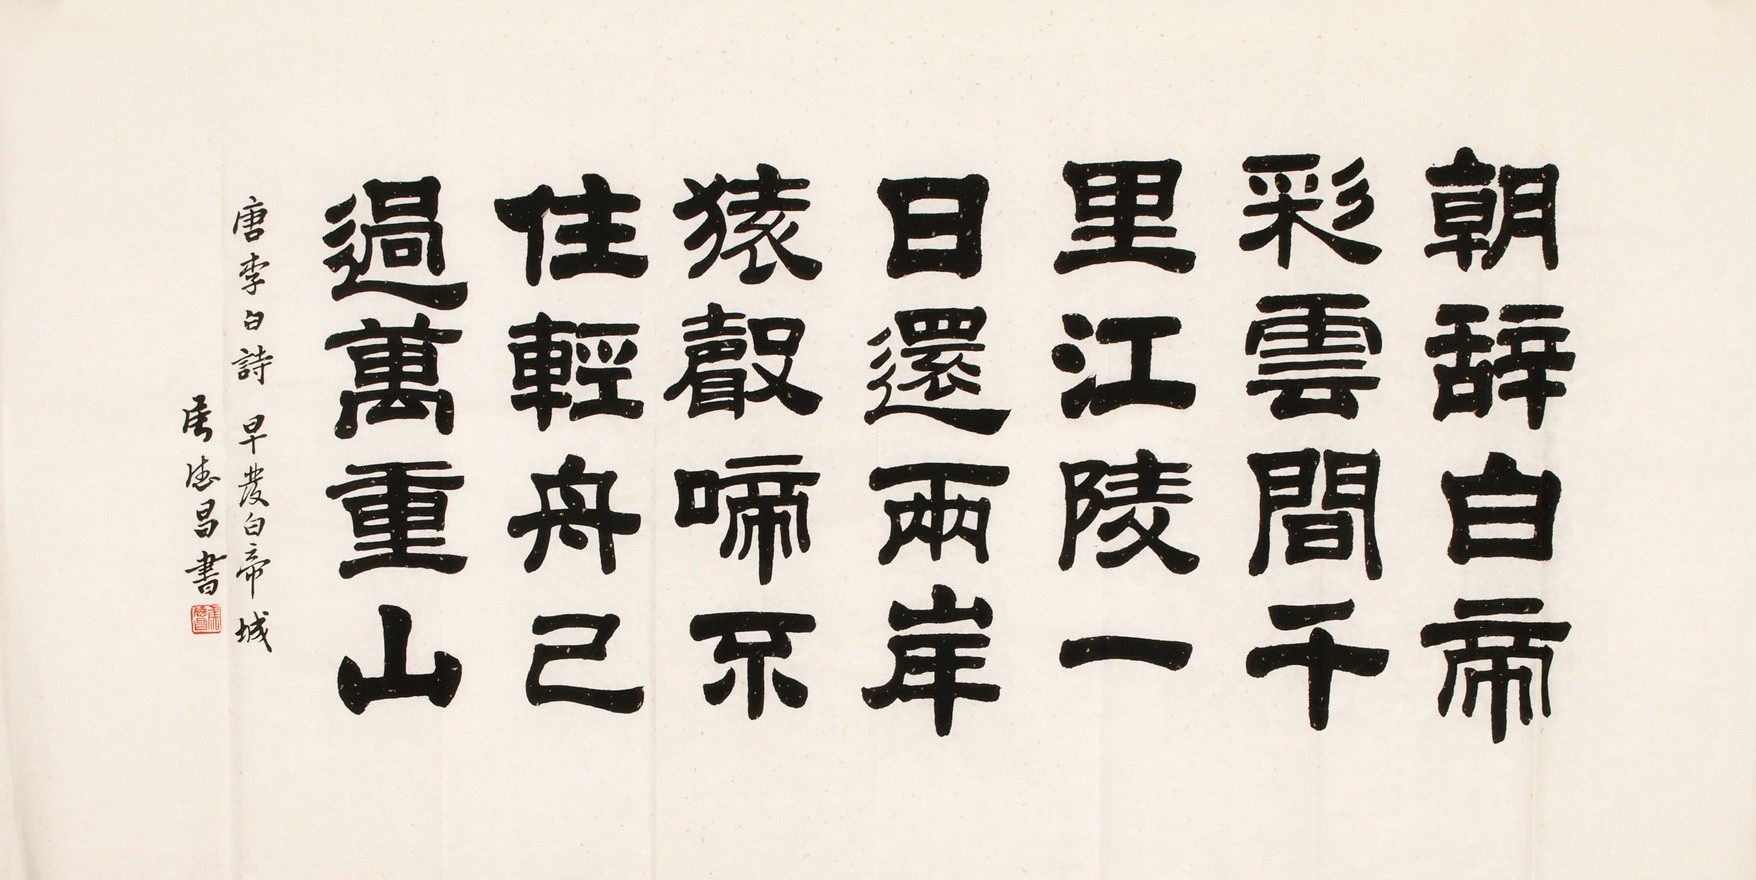 朝辭白帝
彩雲間千
里江陵一
日還兩岸
猿聲啼不
住輕舟已
過萬重山
唐李白詩 早發白帝城
德昌書